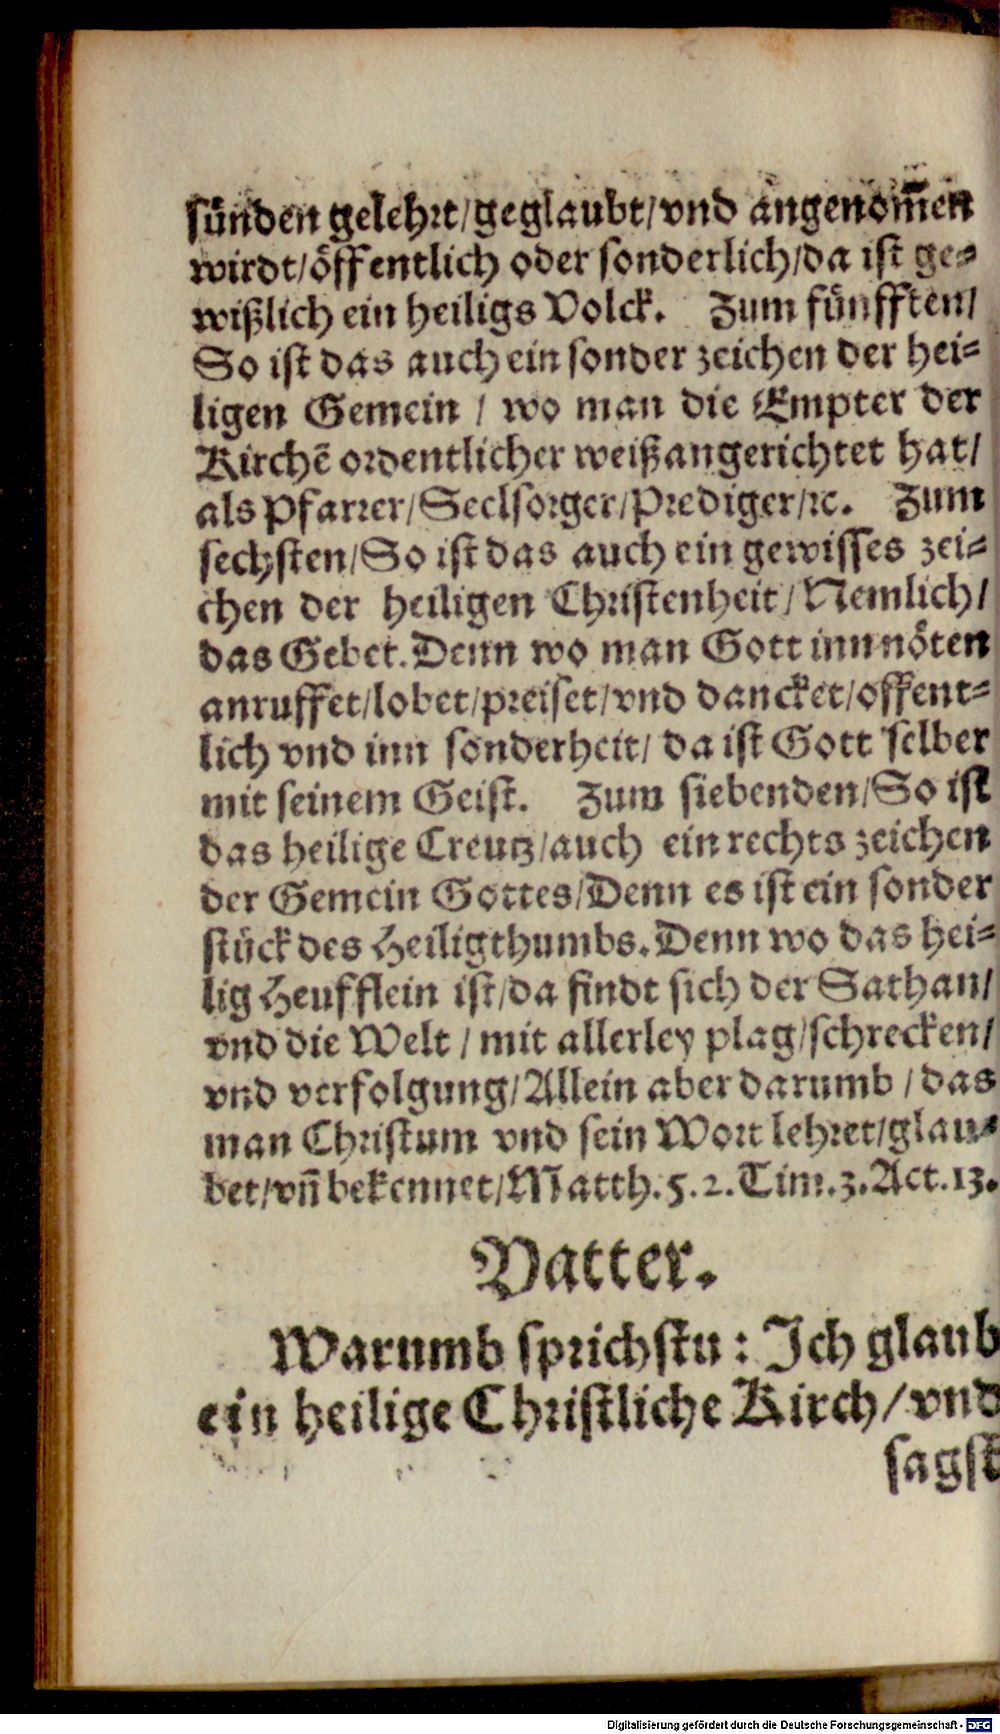 sünden gelehrt/geglaubt/vnd angenom̃en
wirdt/öffentlich oder sonderlich/da ist ge-
wißlich ein heiligs Volck. Zum fünfften/
So ist das auch ein sonder zeichen der hei-
ligen Gemein / wo man die Empter der
Kirchẽ ordentlicher weiß angerichtet hat/
als Pfarrer/Seelsorger/Prediger/ꝛc. Zum
sechsten/So ist das auch ein gewisses zei-
chen der heiligen Christenheit/Nemlich/
das Gebet. Denn wo man Gott inn nöten
anruffet/lobet/preiset/vnd dancket/offent-
lich vnd inn sonderheit/ da ist Gott selber
mit seinem Geist. Zum siebenden/So ist
das heilige Creutz/auch ein rechts zeichen
der Gemein Gottes/Denn es ist ein sonder
stück des Heiligthumbs. Denn wo das hei-
lig Heufflein ist/da findt sich der Sathan/
vnd die Welt / mit allerley plag/schrecken/
vnd verfolgung/Allein aber darumb / das
man Christum vnd sein Wort lehret/glau-
bet/vñ bekennet/Matth.5.2.Tim.3.Act.13.
Vatter.
Warumb sprichstu: Ich glaub
ein heilige Christliche Kirch/vnd
sagst
Digitalisierung gefördert durch die Deutsche Forschungsgemeinschaft - DFG